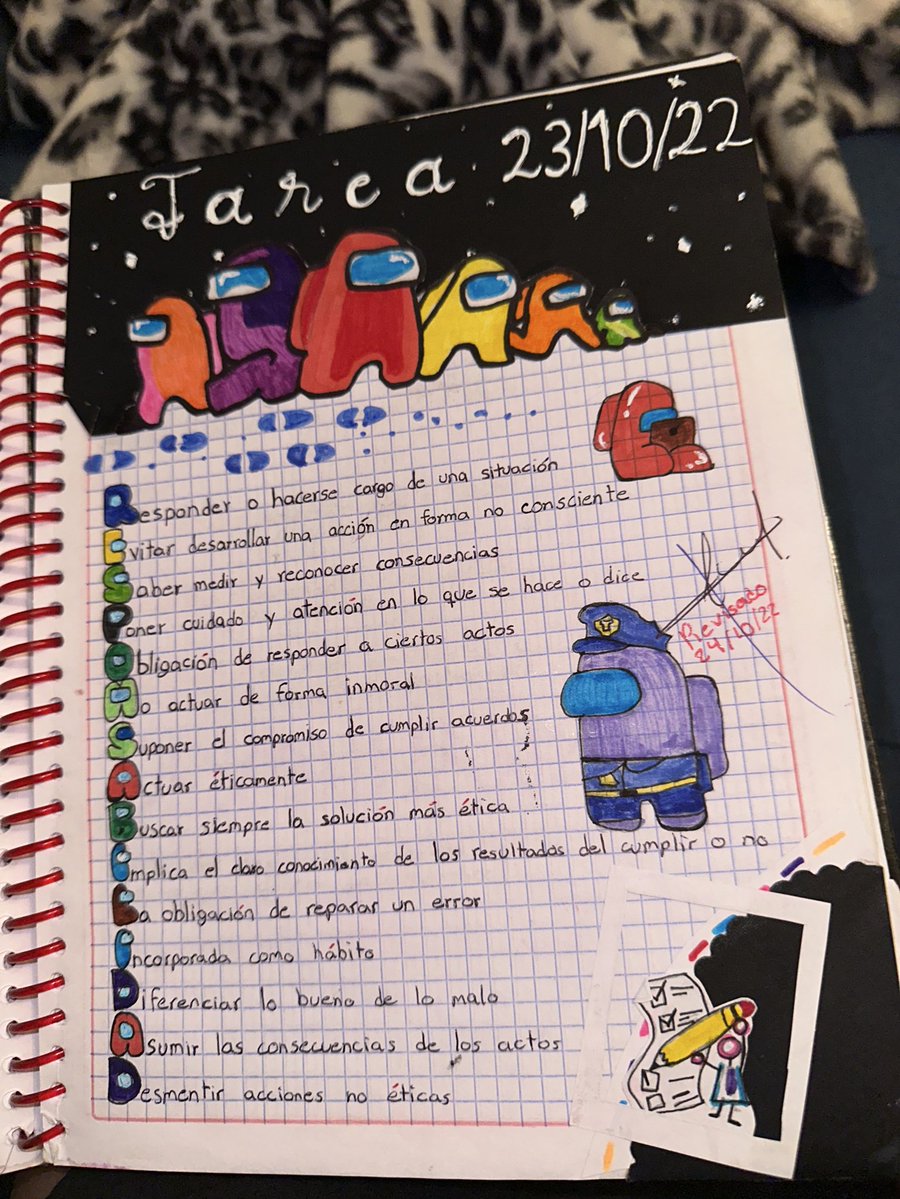 Tarea 23/10/22
Responder o hacerse cargo de una situación
Evitar desarrollar una acción en forma no consciente
Saber medir y reconocer consecuencias
Poner cuidado y atención en lo que se hace o dice
Obligación de responder a ciertos actos
No actuar de forma inmoral
Suponer el compromiso de cumplir acuerdos
Actuar éticamente
Buscar siempre la solución más ética
Implica el claro conocimiento de los resultados del cumplir o no
La obligación de reparar un error
Incorporada como hábito
Diferenciar lo bueno de lo malo
Asumir las consecuencias de los actos
Desmentir acciones no éticas
Revisado
24/10/22